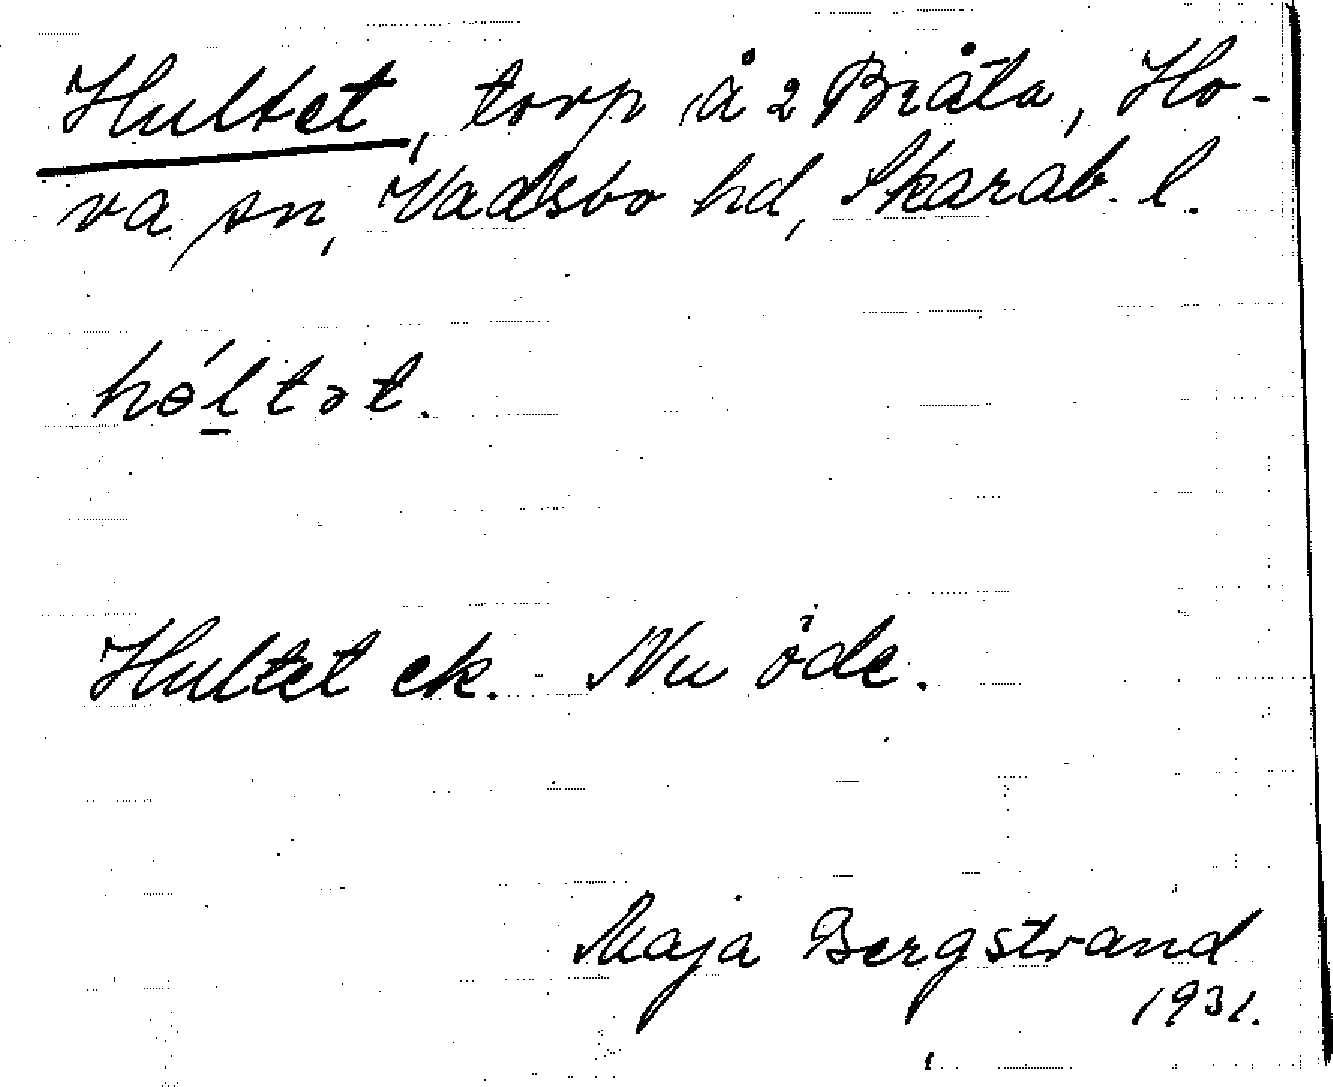 Hultet, torp å 2 Bråta, Ho-
va sn, Vadsbo hd, Skarab. l.
hɵ́l̲tət.
Hultet ek. Nu öde.
Maja Bergstrand
1931.